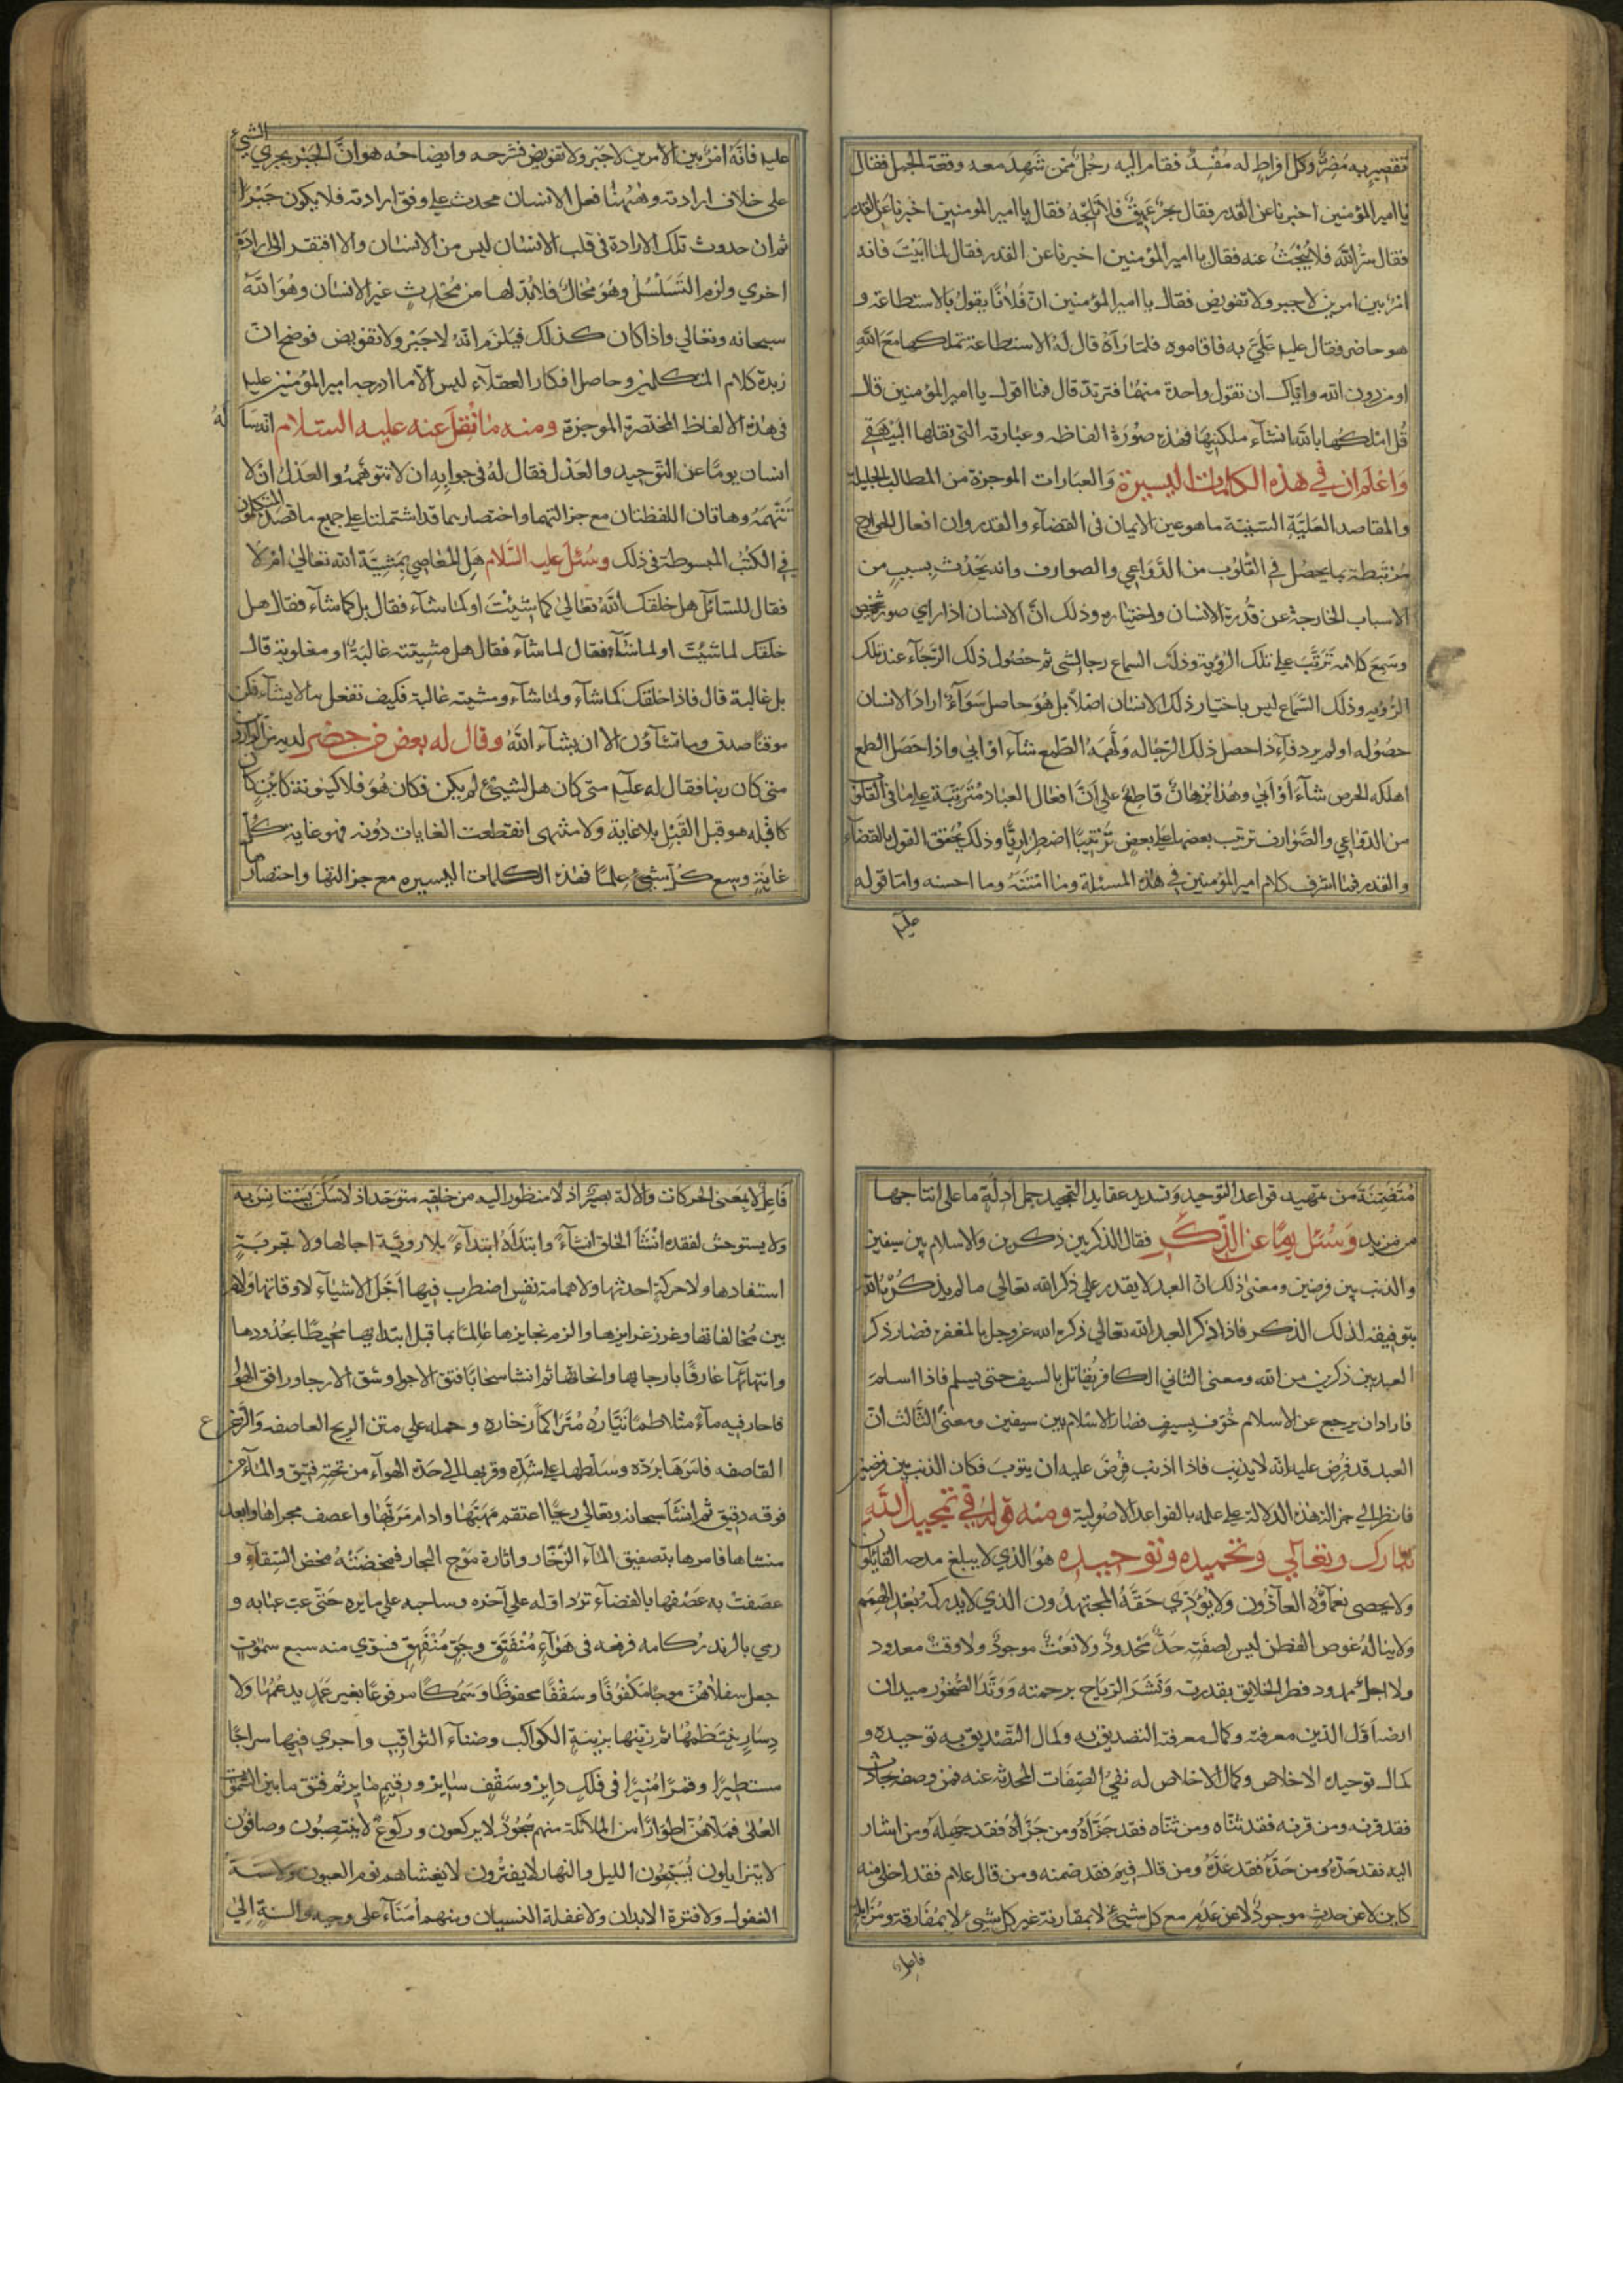 تقصير به مضرّ وكل افراط له مفسد فقام اليه رجل ممن شهد معه وقعة الجمل فقال
يا امير المؤمنين اخبرنا عن القدر فقال بحر عميق فلا تلجه فقال يا امير المومنين اخبرنا عن القدر
فقال سرّ الله فلا يبحث عنه فقال يا امير المؤمنين اخبرنا عن القدر فقال لما ابيت فانه
امر بين امرين لا جبر ولا تفويض فقال يا امير المؤمنين ان فلانا يقول بالاستطاعة و
هو حاضر فقال عليه عليّ به فاقاموه فلما رآه قال له الاستطاعة تملكها مع الله
او من دون الله واياك ان تقول واحدة منهما فترتد قال فما اقول يا امير المؤمنين قال
قل املكها بالله ان شاء ملكنيها فهذه صورة الفاظه وعبارته التى نقلها البيهقي
واعلم ان في هذه الكلمات اليسيرة والعبارات الموجزة من المطالب الجليلة
والمقاصد العليّة السنيّة ما هو عين الايمان فى القضآء والقدر وان افعال الجوارح
مرتبطة بما يحصل في القلوب من الدواعي والصوارف وانه يحدث بسبب من
الاسباب الخارجة عن قدرة الانسان واختياره وذلك انّ الانسان اذا راي صورة شخص
وسمع كلامه ترتب على تلك الرؤية وذلك السماع رجا لشى ثم حصول ذلك الرجآء عند تلك
الرؤيه وذلك السماع ليس باختيار ذلك الانسان اصلا بل هو حاصل سوآء اراد الانسان
حصوله او لم يرد فاذا حصل ذلك الرجا له ولّهه الطمع شآء او ابي واذا حصل الطمع
اهلكه الحرص شآء او ابي وهذا برهان قاطع على انّ افعال العباد مترتبة على ما في القلوب
من الدواعي والصوارف ترتيب بعضها على بعض ترتيبا اضطراريا وذلك يحقق القول بالقضآء
والقدر فما اشرف كلام امير المؤمنين في هذه المسئلة وما امتنه وما احسنه واما قوله
عليه
عليه فانّه امر بين الامرين لا جبر ولا تفويض فشرحه وايضاحه هو انّ الجبر يجري الشيء
على خلاف ارادته وههنا فعل الانسان محدث على وفق ارادته فلا يكون جبرا
ثم ان حدوث تلك الارادة فى قلب الانسان ليس من الانسان والا افتقر الى ارادة
اخري ولزم التسلسل وهو محال فلا بدّ لها من محدث غير الانسان وهو الله
سبحانه وتعالي واذا كان كذلك فيلزم انّه لا جبر ولا تفويض فوضح انّ
زبدة كلام المتكلمين وحاصل افكار العقلآء ليس الّا ما ادرجه امير المؤمنين عليه
فى هذه الالفاظ المختصرة الموجزة ومنه ما نقل عنه عليه السلام انه سأله
انسان يوما عن التوحيد والعدل فقال له فى جوابه ان لا تتوهمه والعدل ان لا
تتهمه وهاتان اللفظتان مع جزالتهما واختصارهما قد اشتملتا على جميع ما قصد المتكلمون
في الكتب المبسوطة فى ذلك وسئل عليه السلام هل المعاصي بمشيّة الله تعالى ام لا
فقال للسآئل هل خلقك الله تعالى كما شيئت او كما شآء فقال بل كما شآء فقال هل
خلقك لما شيئت او لما شآء فقال لما شآء فقال هل مشيئته غالبة او مغلوبة قال
بل غالبة قال فاذا خلقك كما شآء ولما شآء ومشيته غالبة فكيف تفعل ما لا يشآء فكن
موقنا صدق وما تشآؤن الا ان يشآء الله وقال له بعض من حضر لديه من الواردين
متى كان ربنا فقال له عليه متى كان هل لشيئ لم يكن فكان هو فلا كينونة كاين كا
كا قبله هو قبل القبل بلا غاية ولا منتهى انقطعت الغايات دونه فهو غاية كل
غاية وسع كل شيئ علما فهذه الكلمات اليسيره مع جزالتها واختصارها
متضمنة من تمهيد قواعد التوحيد وتسديد عقايد التمجيد جمل ادلة ما على انتاجها
من مزيد وسئل يوما عن الذكر فقال الذكر بين ذكرين والاسلام بين سيفين
والذنب بين فرضين ومعنى ذلك ان العبد لا يقدر على ذكر الله تعالي ما لم يذكره الله
بتوفيقه لذلك الذكر فاذا ذكر العبد الله تعالي ذكره الله عز وجل بالمغفرة فصار ذكر
العبد بين ذكرين من الله ومعنى الثاني الكافر يقاتل بالسيف حتى يسلم فاذا اسلم
فاراد ان يرجع عن الاسلام خوّف بسيف فصار الاسلام بين سيفين ومعنى الثالث انّ
العبد قد فرض عليه انّه لا يذنب فاذا اذنب فرض عليه ان يتوب فكان الذنب بين فرضين
فانظر الى جزالة هذه الدلالة على علمه بالقواعد الاصولية ومنه قوله في تمجيد الله
تبارك وتعالي وتحميده وتوحيده هو الذي لا يبلغ مدحه القايلون
ولا يحصى نعمآؤه العآدّون ولا يؤدّي حقّه المجتهدون الذي لا يدركه بعد الهمم
ولا يناله غوص الفطن ليس لصفته حدّ محدود ولا نعت موجود ولا وقت معدود
ولا اجل ممدود فطر الخلايق بقدرته ونشر الرياح برحمته ووتّد الصخور ميدان
ارضه اوّل الدين معرفته وكمال معرفته التصديق به وكمال التصديق به توحيده و
كمال توحيده الاخلاص وكمال الاخلاص له نفي الصفات المحدثه عنه فمن وصفه بحادث
فقد قرنه ومن قرنه فقد ثنّاه ومن ثنّاه فقد جزّأه ومن جزّأه فقد جهله ومن اشار
اليه فقد حدّه ومن حدّه فقد عدّه ومن قال فيم فقد ضمنه ومن قال علام فقد اخلى منه
كاين لا عن حدث موجود لا عن عدم مع كل شيئ لا بمقارنة غير كل شيئ لا بمفارقة ومزايلة
فاعل
فاعل لا بمعنى الحركات والآلة بصير اذ لا منظور اليه من خلقه متوحد اذ لا سكن يستانس به
ولا يستوحش لفقده انشأ الخلق انشآءً وابتدأه ابتدآءً بلا رويّة اجالها ولا تجربة
استفادها ولا حركة احدثها ولا همامة نفس اضطرب فيها اجل الاشيآء لاوقاتها ولام
بين مخالفاتها وغرز غرايزها والزم نجايزها عالما بها قبل ابتدايها محيطا بحدودها
وانتهائها عارفا بارجايها وانحائها ثم انشا سحابا فتق الاجوا وشق الارجا ورافق الهوآ
فاجار فيه مآء متلاطما تيّاره متراكما زخاره وحمله على متن الريح العاصفه والزعزع
القاصفه فامرها بردّه وسلطها على شدّه وقربها الى حدّه الهوآء من تحته فتيق والمآء من
فوقه دقيق ثم انشأ سبحانه وتعالي ريحا اعتقم مهبّها وادام مربها واعصف مجراها وابعد
منشاها فامرها بتصفيق المآء الزخّار واثارة موج البحار فمخضته مخض السقآء و
عصفت به عصفها بالفضآء تردّ اوّله على آخره وساجيه على مايره حتى عبّ عبابه و
رمي بالزبد ركامه فرفعه فى هوآء منفتق وجوّ منفهق فسوّي منه سبع سموات
جعل سفلاهن موجا مكفوفا وسقفا محفوظا وسمكا مرفوعا بغير عمد يدعمها ولا
دسار ينتظمها ثم زيّنها بزينة الكواكب وضيآء الثواقب واجري فيها سراجا
مستطيرا وقمرا منيرا فى فلك داير وسقف ساير ورقيم ماير ثم فتق ما بين السموات
العلى فملأهن اطوارا من الملائكة منهم سجود لا يركعون وركوع لا ينتصبون وصافون
لا يتزايلون يسبّحون الليل والنهار لا يفترون لا يغشاهم نوم العيون ولا سنة
العقول ولا فترة الابدان ولا غفلة النسيان ومنهم امنآء على وحيه والسنة الى